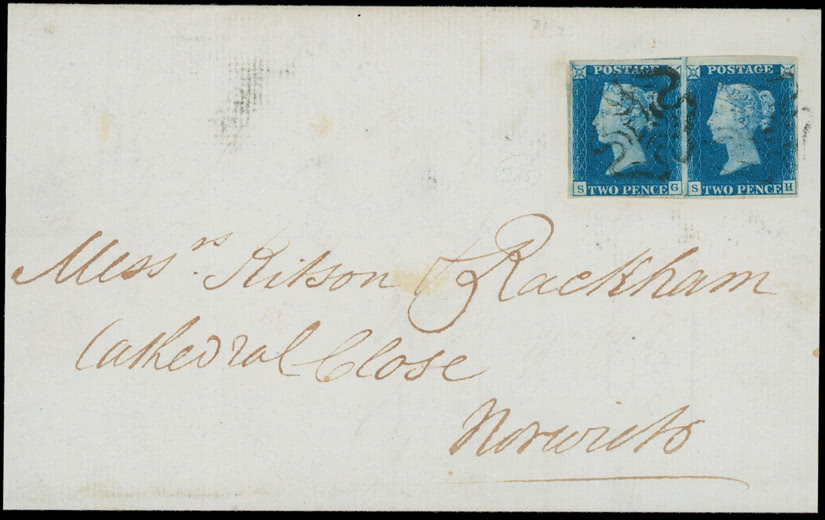 POSTAGE POSTAGE
S TWO PENCE G S TWO PENCE H
Mess.rs Kitson & Rackham
Cathedral Close
Norwich